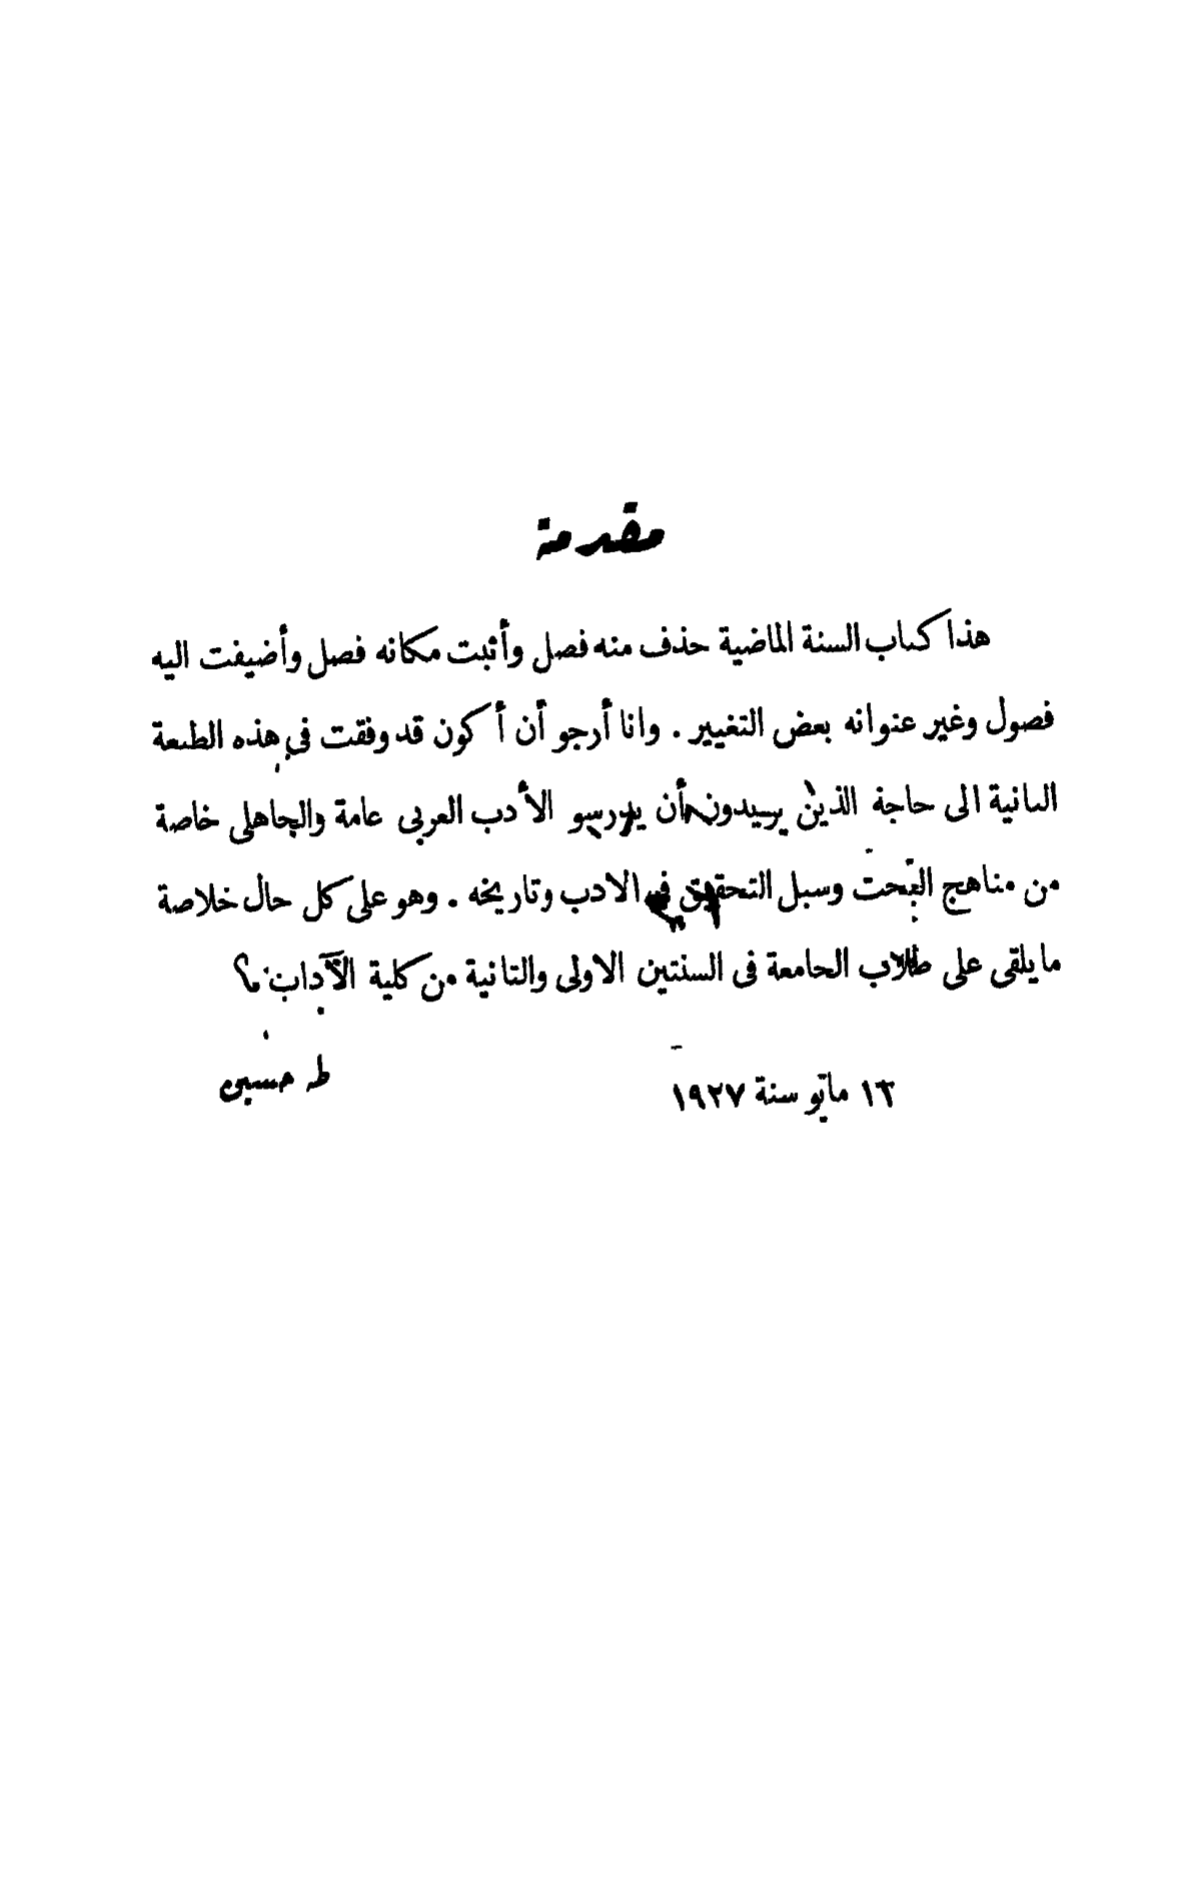 مقدمة
هذا كتاب السنة الماضية حذف منه فصل وأثبت مكانه فصل وأضيفت اليه
فصول وغير عنوانه بعض التغيير . وانا أرجو أن أكون قد وفقت في هذه الطبعة
الثانية الى حاجة الذين يريدون أن يدرسو الأدب العربى عامة والجاهلى خاصة
من مناهج البحث وسبل التحقيق في الادب وتاريخه . وهو على كل حال خلاصة
ما يلقى على طلاب الجامعة فى السنتين الاولى والثانية من كلية الآداب
مايو سنة ١٩٢٧
طه حسين